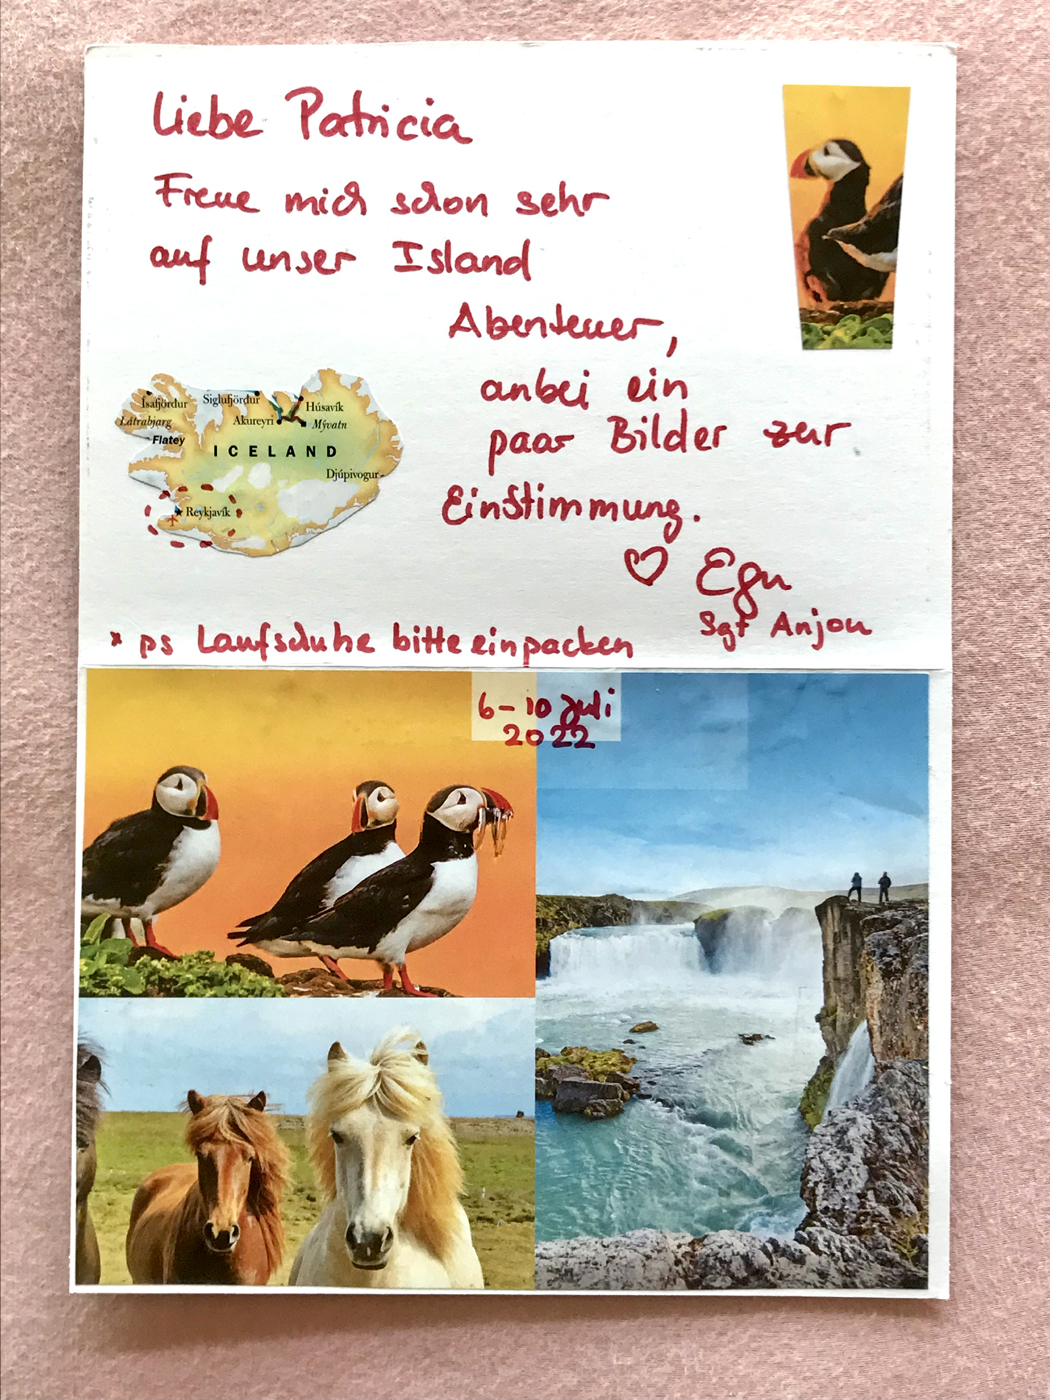 Liebe Patricia
Freue mich schon sehr
auf unser Island
Abenteuer,
anbei ein
paar Bilder zur
Einstimmung.
♡ Egu
Sgt Anjou
Ísafjördur
Siglufjördur
Húsavík
Látrabjarg
Akureyri
Mývatn
Flatey
ICELAND
Djúpivogur
Reykjavík
* ps Laufschuhe bitte einpacken
6-10 Juli
2022